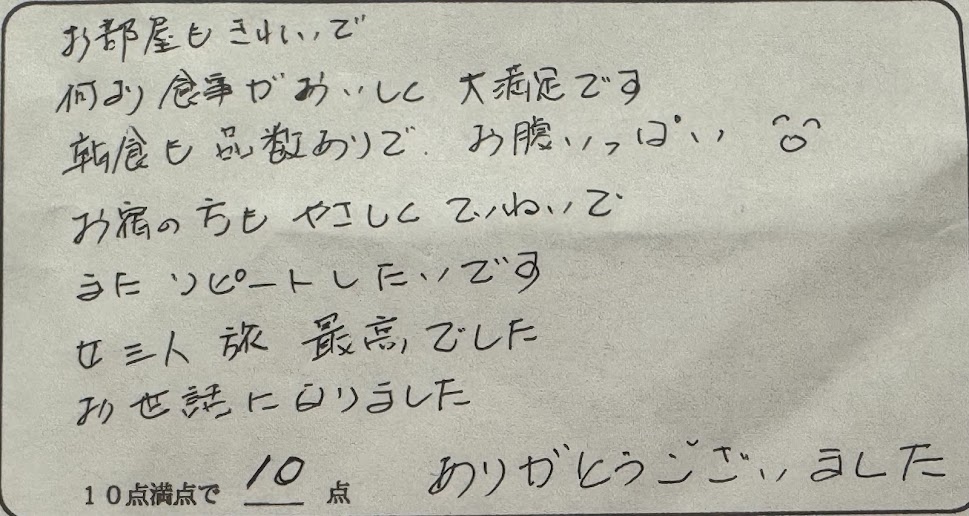 お部屋もきれいで
何より食事がおいしく 大満足です
朝食も品数ありで、お腹いっぱい
お宿の方も やさしく ていねいで
また リピートしたいです
女三人旅 最高でした
お世話になりました
10点満点で 10 点 ありがとうございました